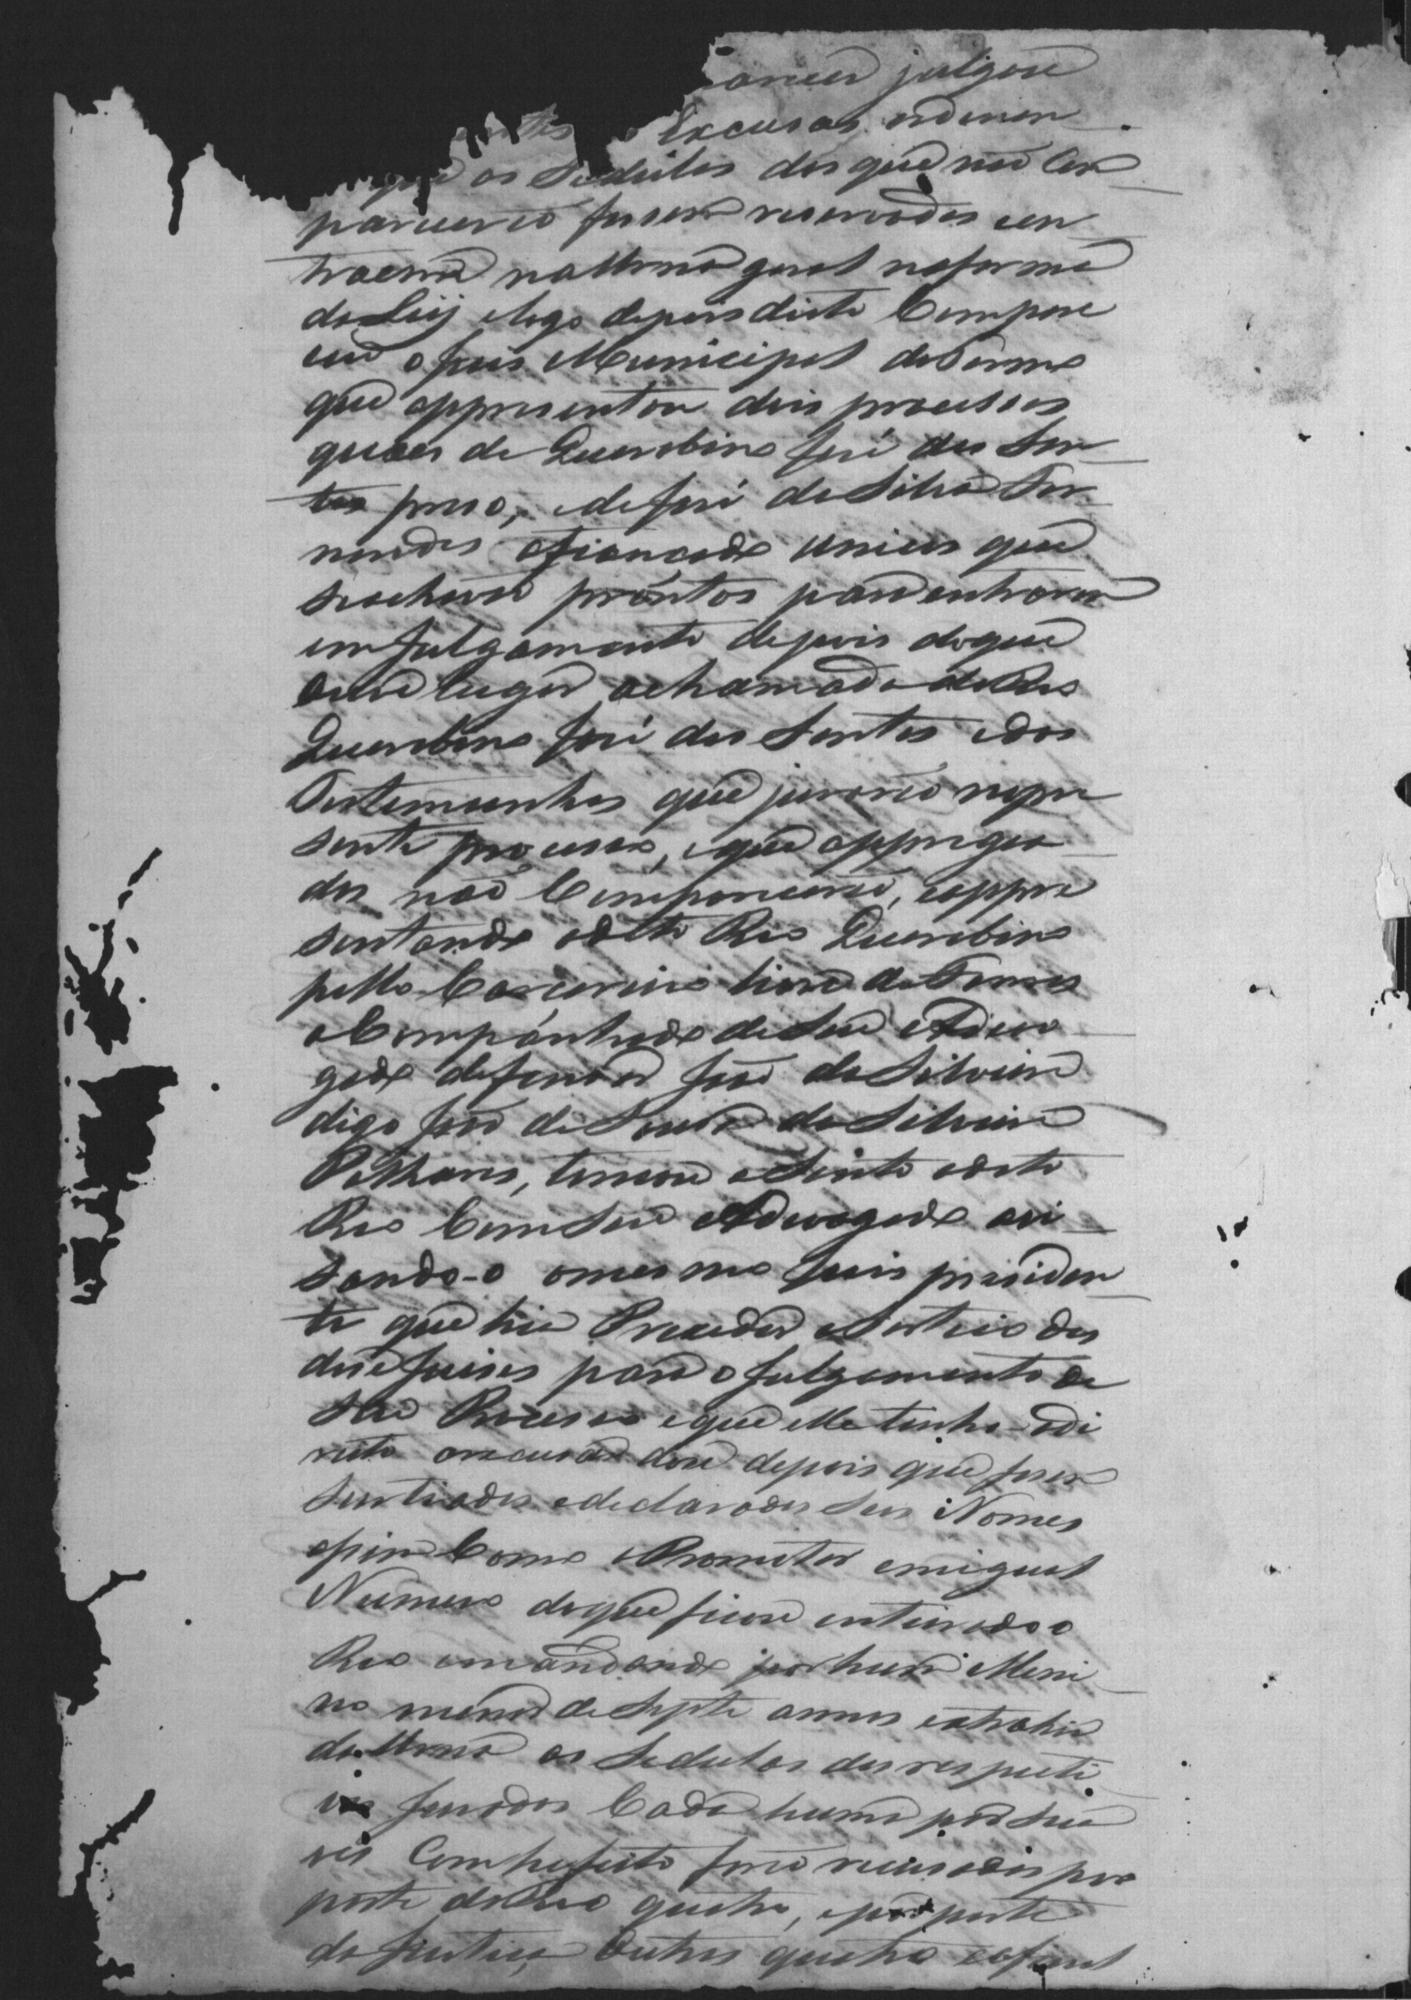 julgou
Excusas ordenou
que as Sedulas dos que não Com
parecerão fosem reservadas en
traem na Urna geral na forma
da Leij e logo depois disto Compare
ceo o Juis Municipal do Termo
que appresentou dois processos
quaes de Querobino José dos San
tos preso, e de José da Silva Fer
nandes afiancado unicos que
se achavão prontos para entrarem
em Julgamento depois do que
teve lugar a chamada do Reo
Querobino José dos Santos e das
Testemunhas que jurarão no pre
sente processo, e que appregoa
das não Comparecerão, e appre
sentando o dito Reo Querobino
pello Carcereiro livre de Ferros
a Companhado de Seu Advo
gado defensor João da Silveira
digo João de Souza da Silveira
tomou asento o dito
Reo Com Seu Advogado avi
sando-o o mesmo Juis presiden
te que hia Proceder o Sorteio dos
dose Juises para o Julgamento de
seu Processo e que elle tinha o di
reito arecusar dose depois que fosem
Surtiados e declarados Seus Nomes
asim Como o Promotor em igual
Numero do que ficou entirado o
Reo e mandando por hum Meni
no menor de Septe annos extrahir
da Urna as Sedulas dos respecti
vos Jurados Cada huma por sua
ves Com hefeito forão recusados por
parte do Reo quatro, e por parte
da Justiça Outros quatro e afinal